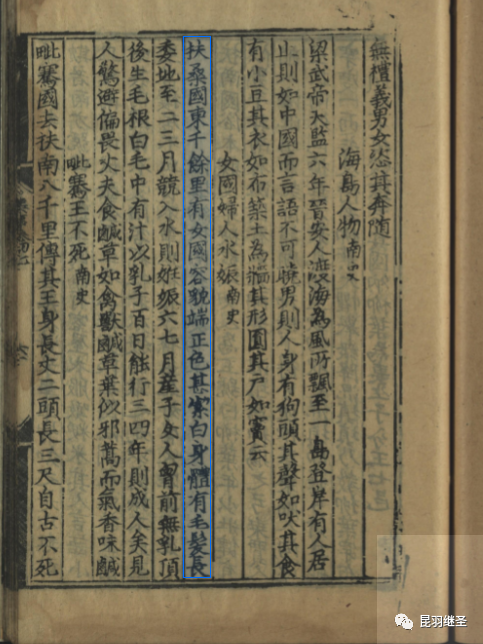 無禮義男女恣其奔隨
海島人物南史
梁武帝天監六年晉安人渡海為風所飄至一島登岸有人居
止則如中國而言語不可曉男則人身有狗頭其聲如吠其食
有小豆其衣如布築土為牆其形圓其戶如竇云
女國婦人水娠南史
扶桑國東千餘里有女國容貌端正色甚絜白身體有毛髮長
委地至二三月競入水則姙娠六七月產子女人胷前無乳頂
後生毛根白毛中有汁以乳子百日能行三四年則成人矣見
人驚避偏畏丈夫食鹹草如禽獸鹹草葉似邪蒿而氣香味鹹
毗騫王不死南史
毗騫國去扶南八千里傳其王身長丈二頭長三尺自古不死
昆羽继圣